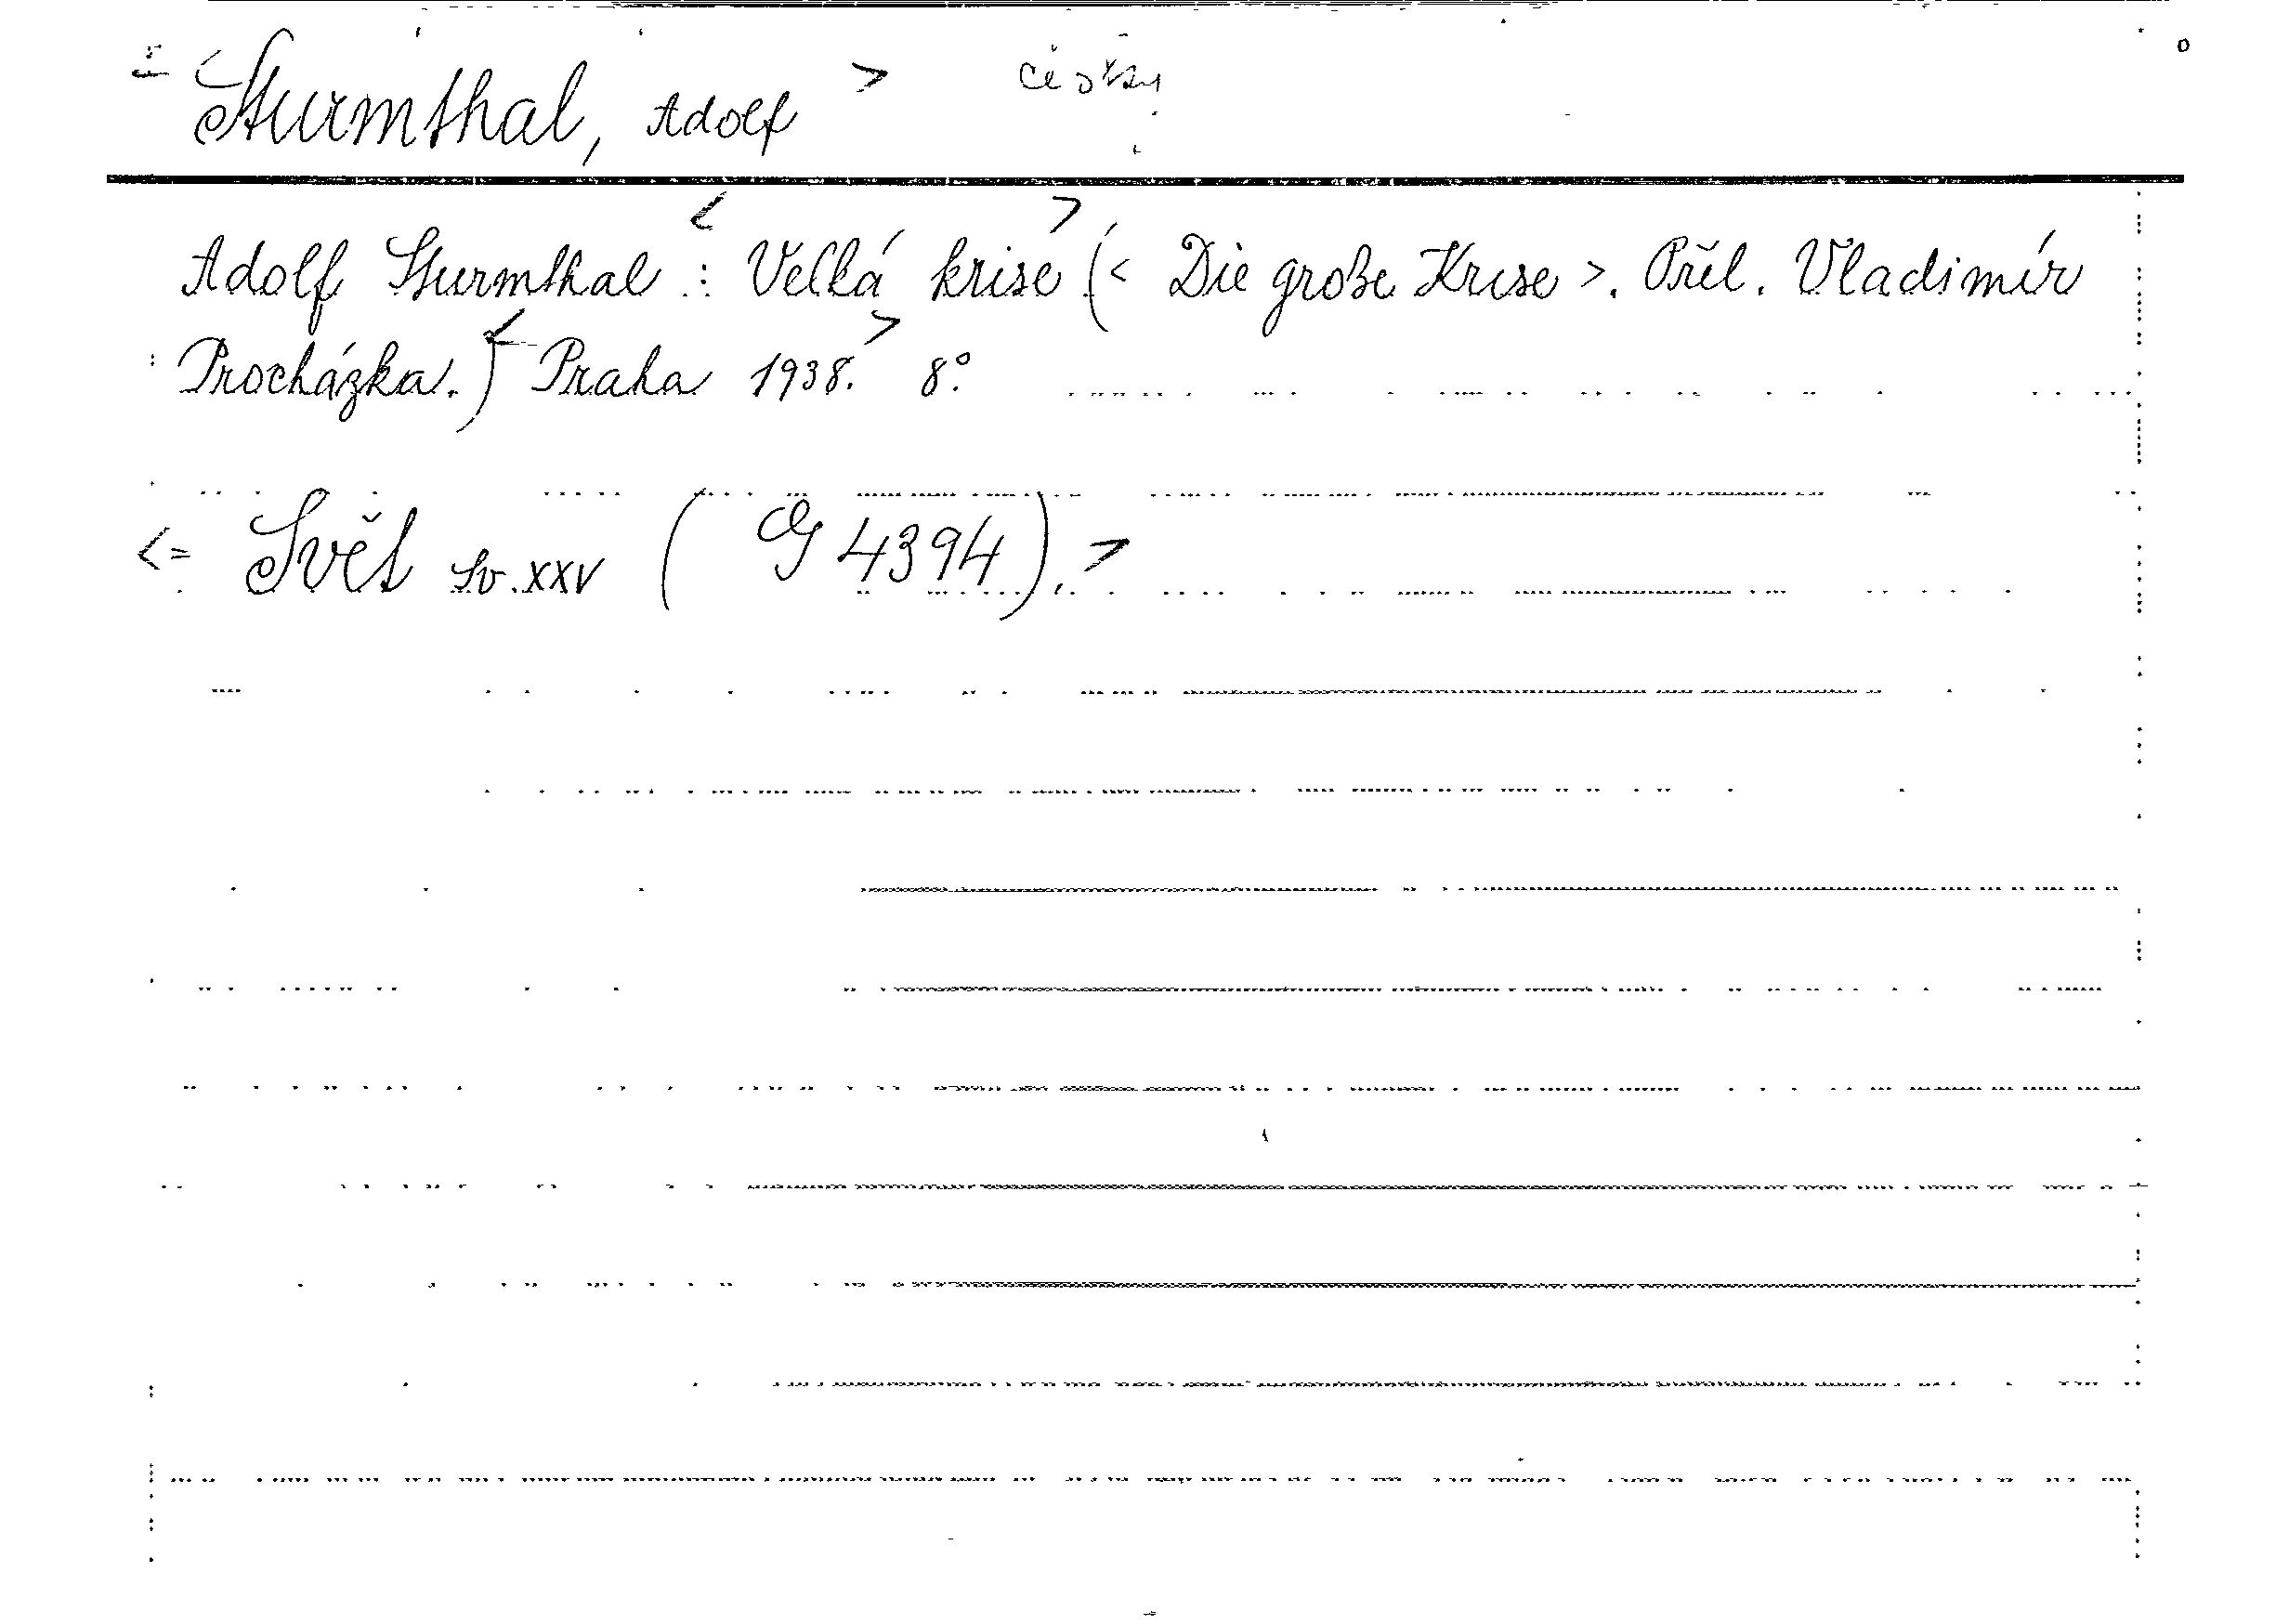 Sturmthal, Adolf > česky
Adolf Sturmthal : <Velká krise> (< Die große Krise >. Přel. Vladimír
Procházka.) <Praha 1938.> 8°.
<= Svět sv. XXV ( Cg 4394). >